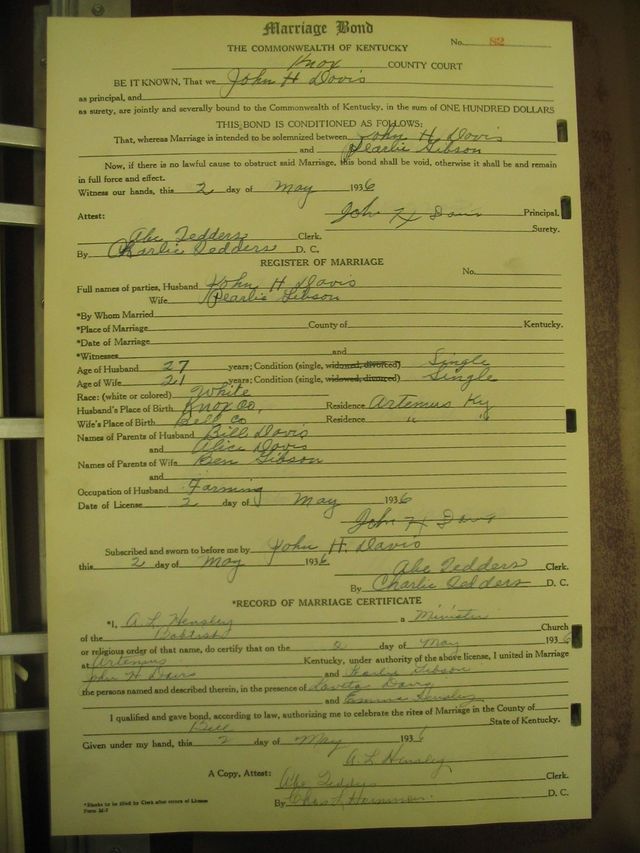 Marriage Bond
THE COMMONWEALTH OF KENTUCKY
No. 82
Knox COUNTY COURT
BE IT KNOWN, That we John H Davis
as principal, and
as surety, are jointly and severally bound to the Commonwealth of Kentucky, in the sum of ONE HUNDRED DOLLARS
THIS BOND IS CONDITIONED AS FOLLOWS:
That, whereas Marriage is intended to be solemnized between John H. Davis
and Pearlie Gibson
Now, if there is no lawful cause to obstruct said Marriage, this bond shall be void, otherwise it shall be and remain
in full force and effect.
Witness our hands, this 2 day of May 1936
John H Davis Principal.
Attest:
Surety.
Abe Tedders Clerk.
By Charlie Tedders D. C.
REGISTER OF MARRIAGE
No.
Full names of parties, Husband John H Davis
Wife Pearlie Gibson
*By Whom Married
*Place of Marriage County of Kentucky.
*Date of Marriage
*Witnesses and
Age of Husband 27 years; Condition (single, widowed, divorced) Single
Age of Wife 21 years; Condition (single, widowed, divorced) Single
Race: (white or colored) White
Husband's Place of Birth Knox Co, Residence Artemus Ky
Wife's Place of Birth Bell Co Residence " "
Names of Parents of Husband Bill Davis
and Alice Davis
Names of Parents of Wife Ben Gibson
and
Occupation of Husband Farming
Date of License 2 day of May 1936
John H Davis
Subscribed and sworn to before me by John H. Davis
this 2 day of May 1936
Abe Tedders Clerk.
By Charlie Tedders D. C.
*RECORD OF MARRIAGE CERTIFICATE
*I, A. L. Hensley a Minister
of the Baptist Church
or religious order of that name, do certify that on the 2 day of May 1936
at Artemus Kentucky, under authority of the above license, I united in Marriage
John H Davis and Pearlie Gibson
the persons named and described therein, in the presence of Davis
and Emma Hensley
I qualified and gave bond, according to law, authorizing me to celebrate the rites of Marriage in the County of
Bell State of Kentucky.
Given under my hand, this 2 day of May 1936
A. L. Hensley
A Copy, Attest: Abe Tedders Clerk.
By Chas L D. C.
*Blanks to be filled by Clerk after return of License
Form M-7